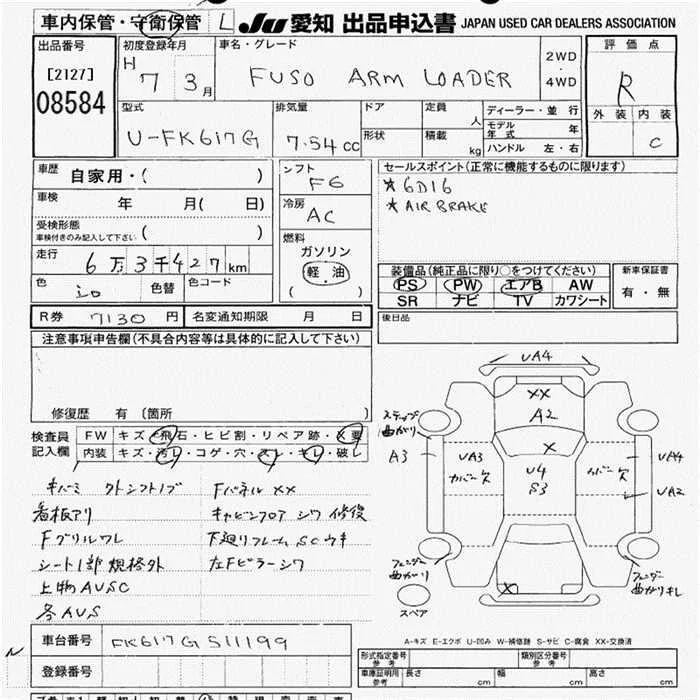 車内保管・守衛保管 L JU 愛知 出品申込書 JAPAN USED CAR DEALERS ASSOCIATION
出品番号 初度登録年月 車名・グレード 2WD・4WD 評価点
[2127] H 7 3月 FUSO ARM LOADER R
08584 外装 内装
型式 排気量 ドア 定員 人 ディーラー・並行
U-FK617G 7.54cc 形状 積載 kg モデル年式 年 C
ハンドル 左・右
車歴 自家用・( ) シフト F6 セールスポイント(正常に機能するものに限ります)
車検 年 月( 日) 冷房 AC ★6D16
受検形態 ( ) ★AIR BRAKE
車検付きのみ記入して下さい
燃料 ガソリン 軽・油 ( )
走行 6万3千427km
色 シロ 色替 色コード
装備品(純正品に限り○をつけてください) 新車保証書
PS PW エアB AW 有・無
SR ナビ TV カワシート
R券 7130円 名変通知期限 月 日 後日品
注意事項申告欄(不具合内容等は具体的に記入して下さい)
修復歴 有 〔箇所 〕
検査員 FW キズ・飛石・ヒビ割・リペア跡・X要
記入欄 内装 キズ・汚レ・コゲ・穴・スレ・キレ・破レ
キバミ 夕トシフトノブ Fパネル XX
看板アリ キャビンフロア シワ 修復
Fグリルワレ 下廻リフレーム SCウキ
シート1部 規格外 左Fピラーシワ
上物AUSC
各AUS
UA4
XX
A2
ステップ曲がり
X
A3
UA3
カバー欠
U4
S3
カバー欠
UA4
UA2
フェンダー曲がり
X
フェンダー曲がりキレ
スペア
A-キズ E-エクボ U-凹み W-補修跡 S-サビ C-腐食 XX-交換済
車台番号 FK617G511199
登録番号
形式指定番号 参考 類別区分番号 参考
車庫証明用 参考 長さ cm 幅 cm 高さ cm